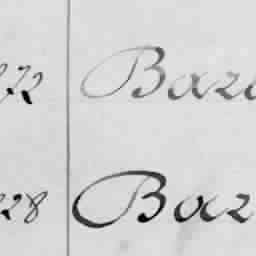 72 Baza
28 Baz